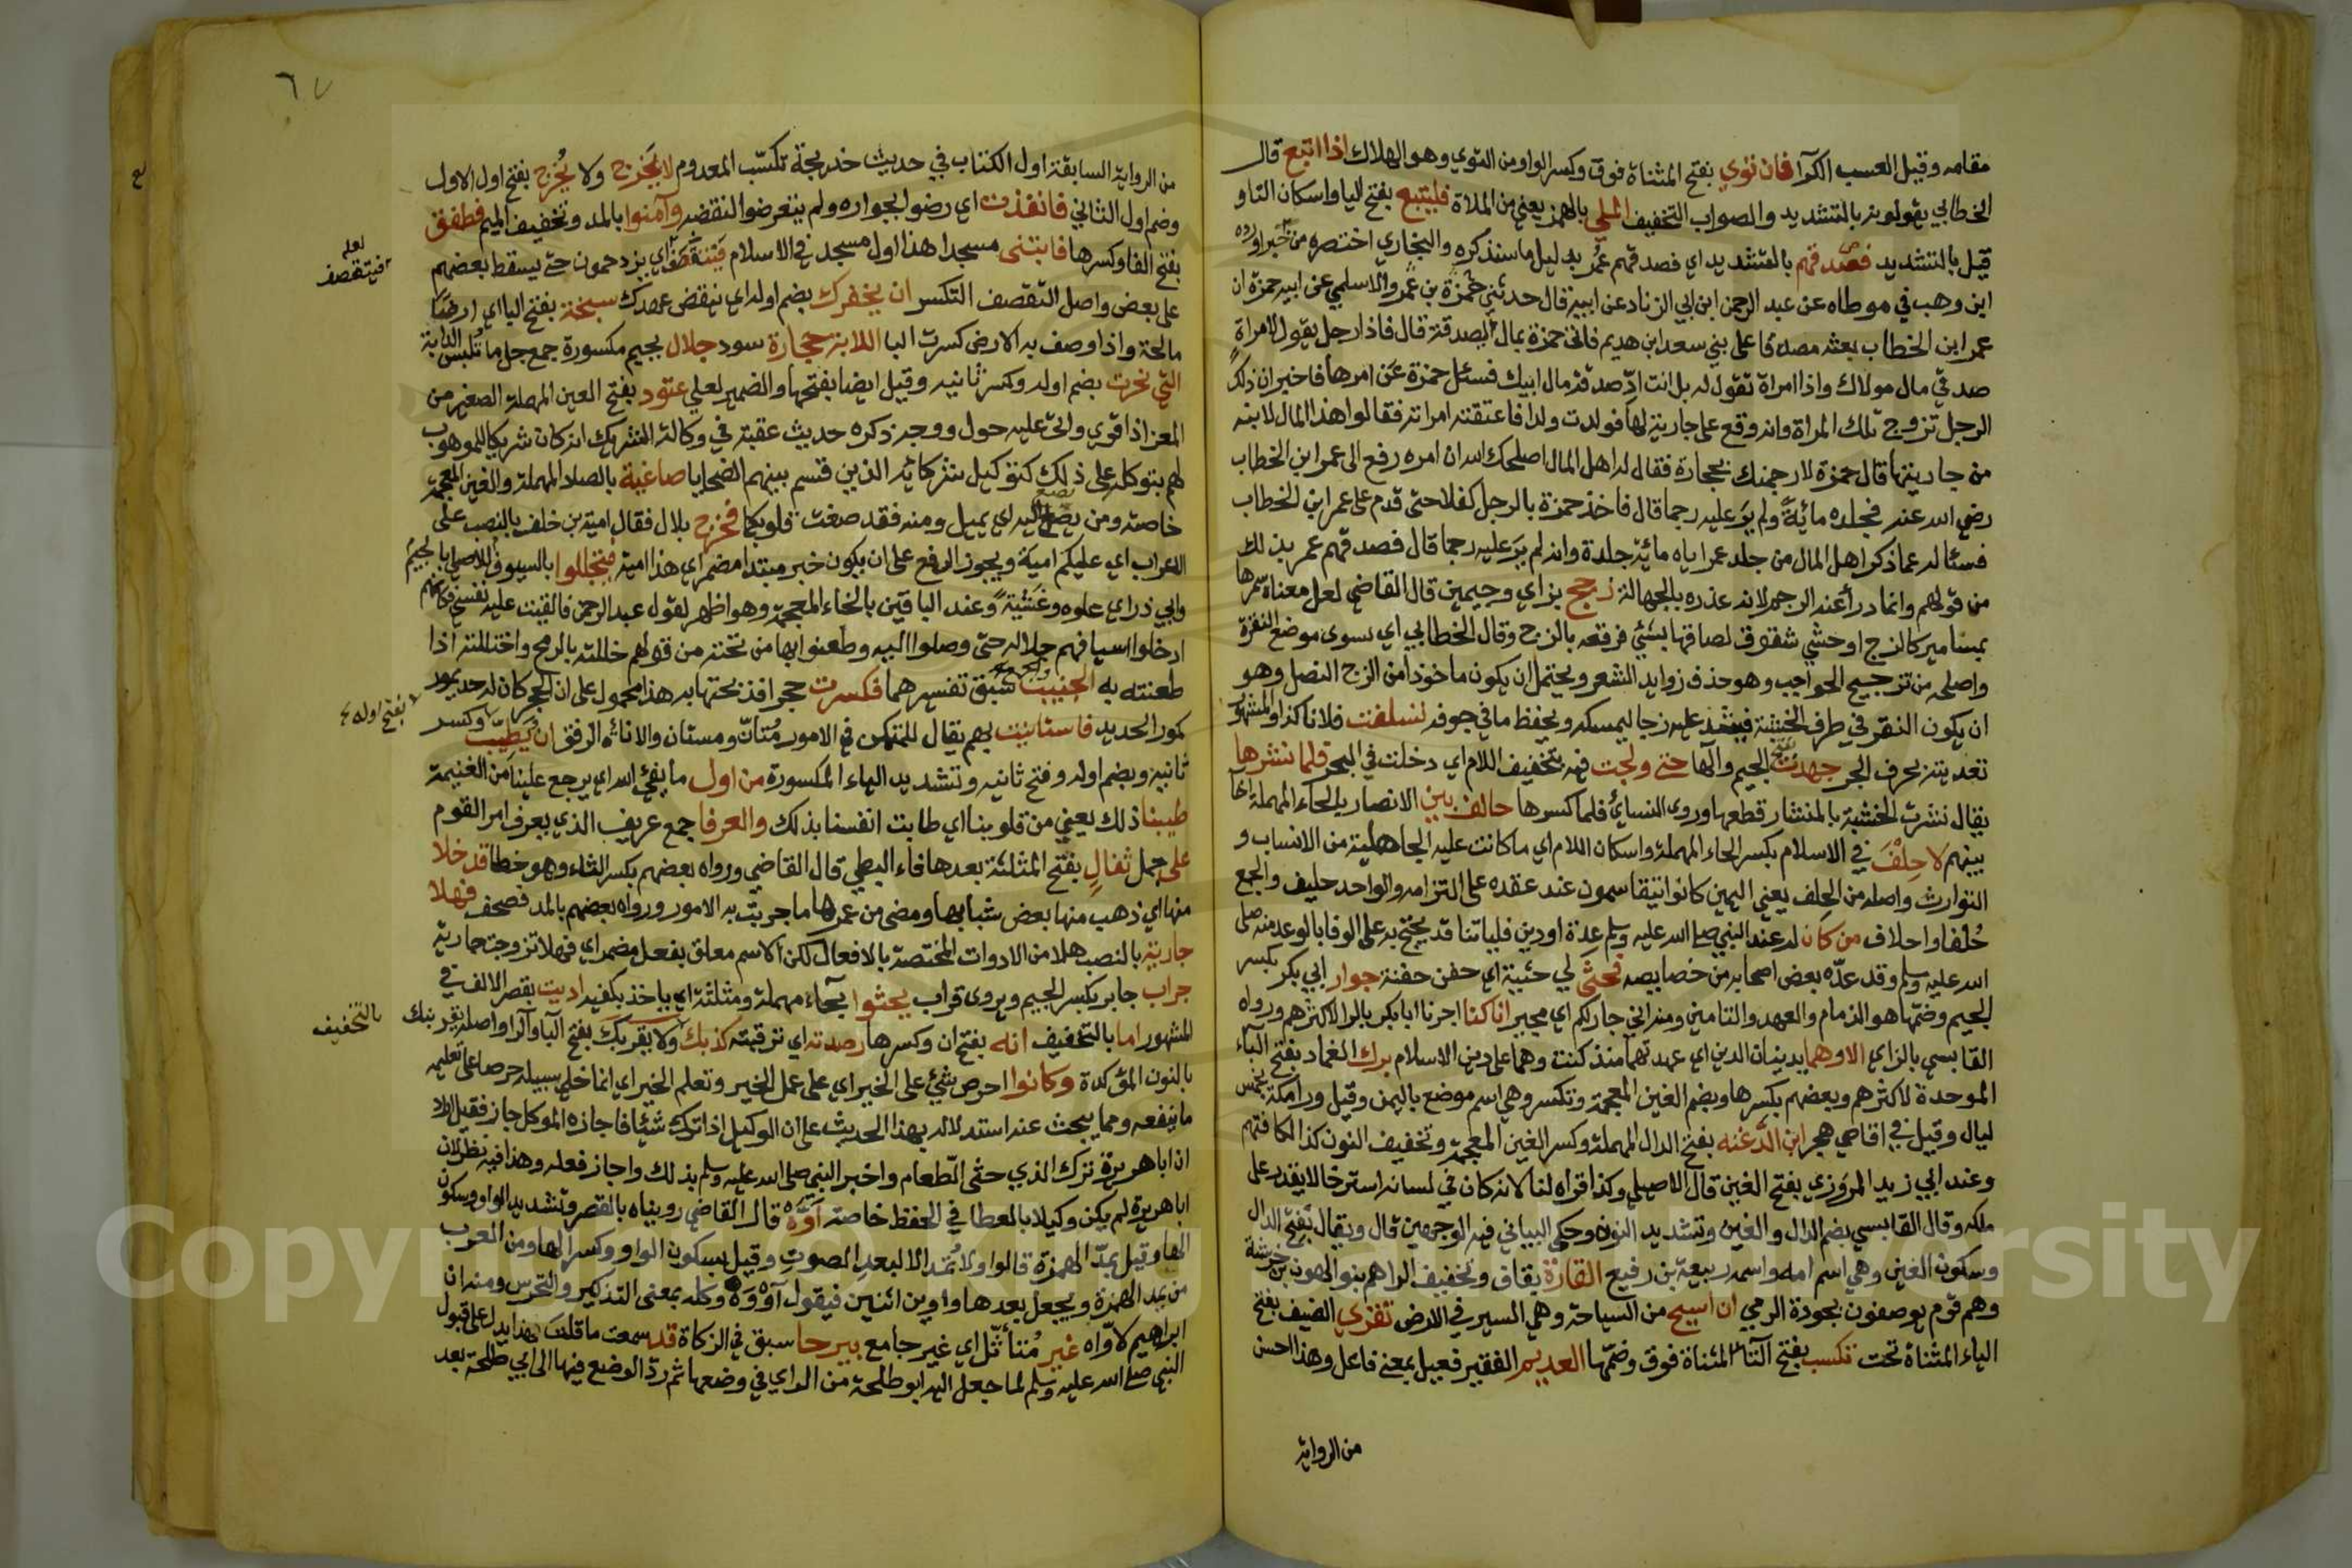 مقامه وقيل العسب الكرا فان توي بفتح المثناة فوق وكسر الواو من التوي وهو الهلاك اذا اتبع قال
الخطابي يقولونه بالتشديد والصواب التخفيف الملي بالهمز يعني من الملاة فليتبع بفتح اليا واسكان التا و
قيل بالتشديد فصدقهم بالتشديد اي فصدقهم عمر بدليل ما سنذكره والبخاري اختصره من خبر اورده
ابن وهب في موطاه عن عبد الرحمن ابن ابي الزناد عن ابيه قال حدثني حمزة بن عمرو الاسلمي عن ابيه حمزة ان
عمر ابن الخطاب بعثه مصدقا على بني سعد ابن هديم فاتى حمزة بمال الصدقة قال فاذا رجل يقول لامراة
صدقي مال مولاك واذا امراة تقول له بل انت ادّ صدقة مال ابيك فسئل حمزة عن امرها فاخبر ان ذلك
الرجل تزوج تلك المراة وانه وقع على جارية لها فولدت ولدا فاعتقته امراته فقالوا هذا المال لابنه
من جاريتها قال حمزة لارجمنك بحجارة فقال له اهل المال اصلحك الله ان امره رفع الى عمر ابن الخطاب
رضي الله عنه فجلده مائة ولم ير عليه رجما قال فاخذ حمزة بالرجل كفلا حتى قدم على عمر ابن الخطاب
فسئاله عما ذكر اهل المال من جلد عمر اياه مائة جلدة وانه لم ير عليه رجما قال فصدقهم عمر بذلك
من قولهم وانما درأ عنه الرجم لانه عذره بالجهالة زجج بزاي وجيمين قال القاضي لعل معناه سمرها
بمسامير كالزج او حشي شقوق لصاقها بشئي فرقعه بالزج وقال الخطابي اي سوى موضع النقرة
واصلحه من تزجيج الحواجب وهو حذف زوايد الشعر ويحتمل ان يكون ماخوذا من الزج النصل وهو
ان يكون النقر في طرف الخشبة فيشد عليه زجا ليمسكه ويحفظ ما في جوفه تسلفت فلانا كذا والمشهور
تعديته بحرف الجر جهدت بفتح الجيم والها حتى ولجت فيه بتخفيف اللام اي دخلت في البحر فلما نشرها
يقال نشرت الخشبة بالمنشار قطعها وروى النسائي فلما كسرها حالف بين الانصار بالحاء المهملة اخا
بينهم لا حلف في الاسلام بكسر الحاء المهملة واسكان اللام اي ما كانت عليه الجاهلية من الانساب و
التوارث واصله من الحلف يعني اليمين كانوا يتقاسمون عند عقده على التزامه والواحد حليف والجمع
حلفا واحلاف من كان له عند النبي صلى الله عليه وسلم عدة او دين فلياتنا قد يحتج به على الوفا بالوعد منه صلى
الله عليه وسلم وقد عدّه بعض اصحابه من خصايصه فحثى لي حثية اي حفن حفنة جوار ابي بكر بكسر
الجيم وضمها هو الذمام والعهد والتامين ومنه اني جار لكم اي مجير انا كنا اجرنا ابا بكر بالرا لاكثرهم ورواه
القابسي بالزاي الا وهما يدينان الدين اي عهدتهما منذ كنت وهما على دين الاسلام برك الغماد بفتح الباء
الموحدة لاكثرهم وبعضهم بكسرها وبضم الغين المعجمة وتكسر وهي اسم موضع باليمن وقيل ورا مكة بخمس
ليال وقيل في اقاصي هجر ابن الدغنه بفتح الدال المهملة وكسر الغين المعجمة وتخفيف النون كذا لكافتهم
وعند ابي زيد المروزي بفتح الغين قال الاصيلي وكذا قراه لنا لانه كان في لسانه استرخا لا يقدر على
ملكه وقال القابسي بضم الدال والغين وتشديد النون وحكى البياني فيه الوجهين قال ويقال بفتح الدال
وسكون الغين وهي اسم امه واسمه ربيعة بن رفيع القارة بقاف وتخفيف الرا هم بنو الهون بن خزيمة
وهم قوم يوصفون بجودة الرمي ان اسيح من السياحة وهي السير في الارض تقري الضيف بفتح
الياء المثناة تحت تكسب بفتح التاء المثناة فوق وضمها العديم الفقير فعيل بمعنى فاعل وهذا احسن
من الرواية
٦٧
من الرواية السابقة اول الكتاب في حديث خديجة تكسب المعدوم لا يَخرج ولا يُخرج بفتح اول الاول
وضم اول الثاني فانفذت اي رضوا بجواره ولم يتعرضوا لنقضه وآمنوا بالمد وتخفيف الميم فطفق
بفتح الفا وكسرها فابتنى مسجدا هذا اول مسجد في الاسلام فيتقصف اي يزدحمون حتى يسقط بعضهم
لعله
فيتقصف
على بعض واصل التقصف التكسر ان يخفرك بضم اوله اي ينقض عهدك سبخة بفتح الباء اي ارضا
مالحة واذا وصف به الارض كسرت البا اللابة حجارة سود جلال بجيم مكسورة جمع جل ما تلبس الدابة
التي نحرت بضم اوله وكسر ثانيه وقيل ايضا بفتحها والضمير لعلي عتود بفتح العين المهملة الصغير من
المعز اذا قوي واتى عليه حول ووجه ذكره حديث عقبة في وكالة الشريك انه كان شريكا للموهوب
لهم بتوكله على ذلك كتوكيل شركائه الذين قسم بينهم الضحايا صاغية بالصاد المهملة والغين المعجمة
خاصته ومن يصغ اليه اي يميل ومنه فقد صغت قلوبكما فخرج بلال فقال امية بن خلف بالنصب على
الاغراب اي عليكم امية ويجوز الرفع على ان يكون خبر مبتدا مضمر اي هذا امية فتجللوا بالسيوف للاصيلي بالجيم
وابي ذر اي علوه وغشية وعند الباقين بالخاء المعجمة وهو اظهر لقول عبد الرحمن فالقيت عليه نفسي فكانهم
ادخلوا اسيافهم خلاله حتى وصلوا اليه وطعنوا بها من تحته من قولهم خللته بالرمح واختللته اذا
طعنته به الجنيب والجمع سبق تفسيرهما فكسرت حجرا فذبحتها به هذا محمول على ان الحجر كان له حد يمور
كمور الحديد فاستانيت بهم يقال للمتمكن في الامور مُتأنّ ومستان والاناة الرفق ان يُطيّب وكسر
بفتح اوله
ثانيه وبضم اوله وفتح ثانيه وتشديد الهاء المكسورة من اول ما يفيء الله اي يرجع علينا من الغنيمة
طيبنا ذلك يعني من قلوبنا اي طابت انفسنا بذلك والعرفا جمع عريف الذي يعرف امر القوم
على جمل ثفال بفتح المثلثة بعدها فاء البطي قال القاضي ورواه بعضهم بكسر الثاء وهو خطا قد خلا
منها اي ذهب منها بعض شبابها ومضى من عمرها ما جربت به الامور ورواه بعضهم بالمد فصحف فهلا
جارية بالنصب هلا من الادوات المختصة بالافعال لكن الاسم معلق بفعل مضمر اي فهلا تزوجت جارية
جراب جابر بكسر الجيم ويروى قراب يحثوا بحاء مهملة ومثلثة اي ياخذ بكفيه اديت بقصر الالف في
المشهور اما بالتخفيف انه بفتح ان وكسرها رصدته اي ترقبته كذبك ولا يقربك بفتح البا والرا واصله يقربنك
بالتخفيف
بالنون المؤكدة وكانوا احرص شئي على الخير اي على عمل الخير وتعلم الخير اي انما خلى سبيله حرصا على تعليمه
ما ينفعه ومما يبحث عنه استدلاله بهذا الحديث على ان الوكيل اذا ترك شيئا فاجازه الموكل جاز فقيل اراد
ان ابا هريرة ترك الذي حثى الطعام واخبر النبي صلى الله عليه وسلم بذلك واجاز فعله وهذا فيه نظر لان
ابا هريرة لم يكن وكيلا بالعطا في الحفظ خاصة اوّه قال القاضي رويناه بالقصر وتشديد الواو وسكون
الها وقيل بمدّ الهمزة قالوا ولا تمد الا لبعد الصوت وقيل بسكون الواو وكسر الها ومن العرب
من يمد الهمزة ويجعل بعدها واوين اثنين فيقول آووه وكله بمعنى التذكير والتحرس ومنه ان
ابراهيم لاوّاه غير مُتأثّل اي غير جامع بيرحا سبق في الزكاة قد سمعت ما قلت هذا يدل على قبول
النبي صلى الله عليه وسلم لما جعل اليه ابو طلحة من الراي في وضعها ثم ردّ الوضع فيها الى ابي طلحة بعد
Copyright © King Saud University